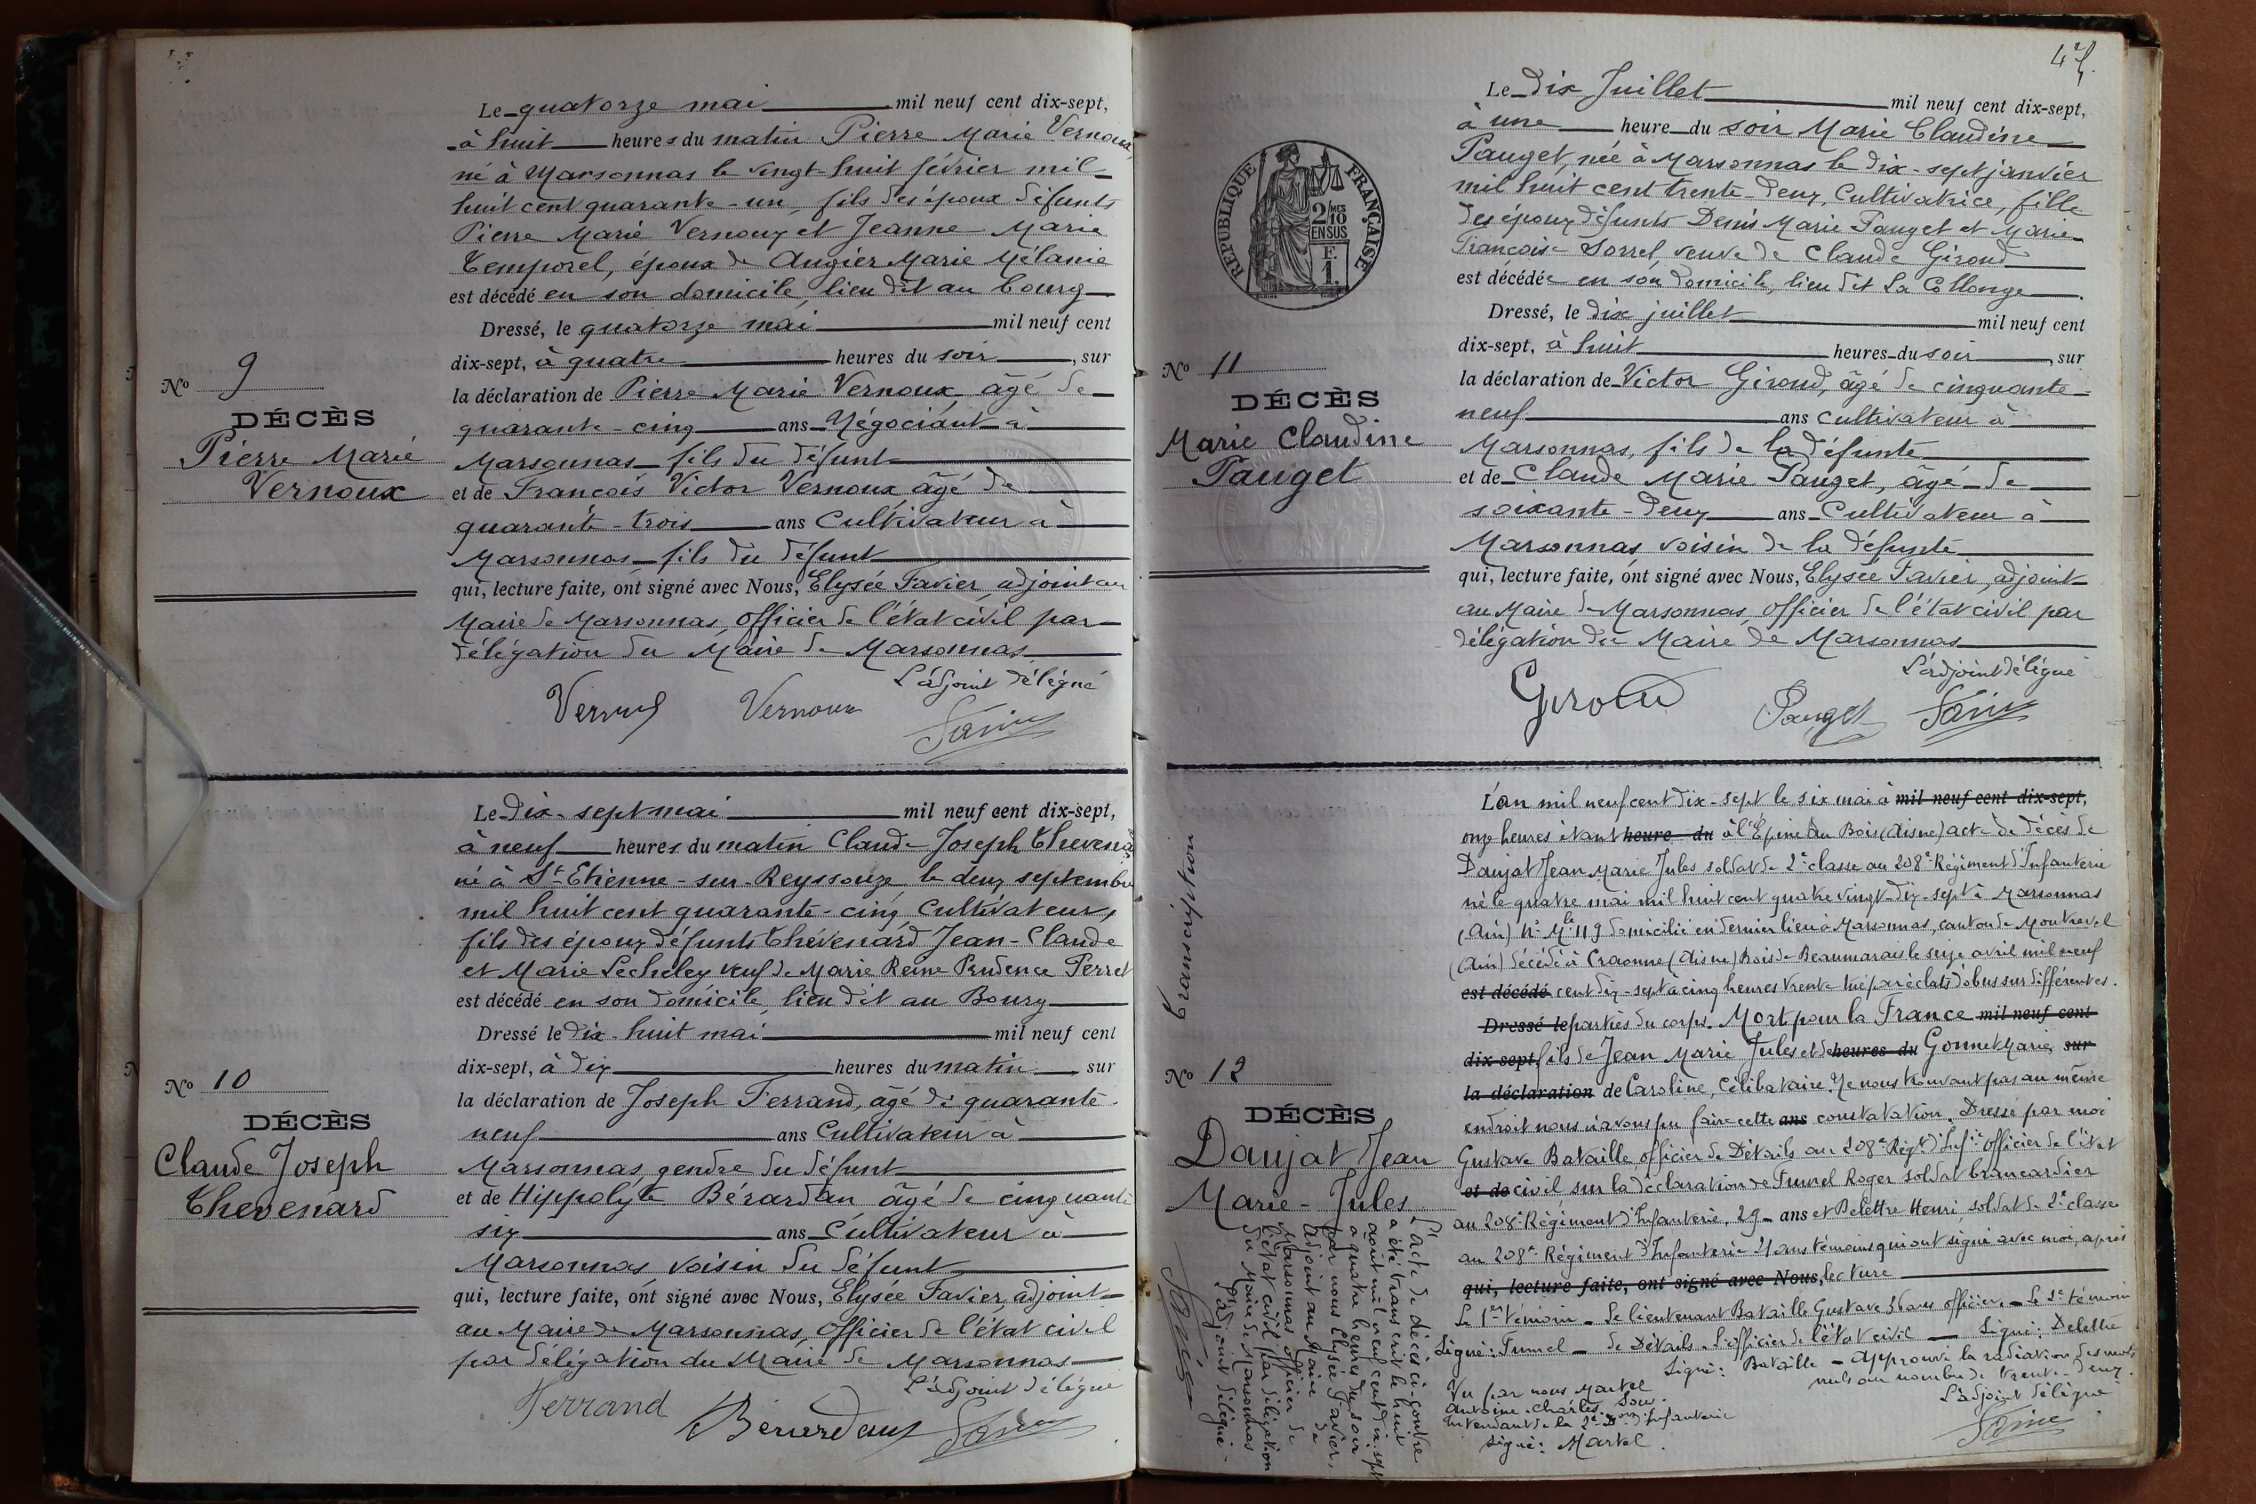 Le quatorze mai mil neuf cent dix-sept,
à huit heures du matin Pierre Marie Vernoux,
né à Marsonnas le vingt-huit février mil
huit cent quarante-un, fils des époux défunts
Pierre Marie Vernoux et Jeanne Marie
Temporel, époux de Augier Marie Mélanie
est décédé en son domicile, lieu dit au bourg
Dressé, le quatorze mai mil neuf cent
dix-sept, à quatre heures du soir, sur
la déclaration de Pierre Marie Vernoux, âgé de
quarante-cinq ans Négociant à
Marsonnas fils du défunt
et de François Victor Vernoux, âgé de
quarante-trois ans Cultivateur à
Marsonnas fils du défunt
qui, lecture faite, ont signé avec Nous, Elysée Favier, adjoint au
Maire de Marsonnas, officier de l'état civil par
délégation du Maire de Marsonnas
L'adjoint délégué
Vernoux Vernoux Favier
No 9
DÉCÈS
Pierre Marie
Vernoux
Le dix-sept mai mil neuf cent dix-sept,
à neuf heures du matin Claude Joseph Thevenard
né à St Etienne-sur-Reyssouze, le deux septembre
mil huit cent quarante-cinq, Cultivateur,
fils des époux défunts Thévenard Jean-Claude
et Marie Lecheley veuf de Marie Reine Prudence Perret
est décédé en son domicile, lieu dit au Bourg
Dressé le dix-huit mai mil neuf cent
dix-sept, à dix heures du matin, sur
la déclaration de Joseph Ferrand, âgé de quarante
neuf ans Cultivateur à
Marsonnas, gendre du défunt
et de Hippolyte Bérardan âgé de cinquante
six ans Cultivateur à
Marsonnas voisin du défunt
qui, lecture faite, ont signé avec Nous, Elysée Favier, adjoint
au Maire de Marsonnas, officier de l'état civil
par délégation du Maire de Marsonnas
L'adjoint délégué
Ferrand Bérardan Favier
No 10
DÉCÈS
Claude Joseph
Thevenard
Le dix Juillet mil neuf cent dix-sept,
à une heure du soir Marie Claudine
Pauget, née à Marsonnas le dix-sept janvier
mil huit cent trente-deux, Cultivatrice, fille
des époux défunts Denis Marie Pauget et Marie
Françoise Sorrel, veuve de Claude Giroud
est décédée en son domicile, lieu dit La Collonge
Dressé, le dix juillet mil neuf cent
dix-sept, à huit heures du soir, sur
la déclaration de Victor Giroud, âgé de cinquante
neuf ans cultivateur à
Marsonnas, fils de la défunte
et de Claude Marie Pauget, âgé de
soixante-deux ans Cultivateur à
Marsonnas voisin de la défunte
qui, lecture faite, ont signé avec Nous, Elysée Favier, adjoint
au Maire de Marsonnas, officier de l'état civil par
délégation du Maire de Marsonnas
L'adjoint délégué
Giroud Pauget Favier
RÉPUBLIQUE FRANÇAISE
2/10MES
EN SUS
F.
1.
No 11
DÉCÈS
Marie Claudine
Pauget
L'an mil neuf cent dix-sept le six mai à mil neuf cent dix-sept,
onze heures étant heure du à l'Epine au Bois (Aisne) acte de décès de
Daujat Jean Marie Jules soldat de 2e classe au 208e Régiment d'Infanterie
né le quatre mai mil huit cent quatre vingt-dix-sept à Marsonnas
(Ain) No Mle 119 domicilié en dernier lieu à Marsonnas, canton de Montrevel
(Ain) décédé à Craonne (Aisne) Bois de Beaumarais le seize avril mil neuf
est décédé cent dix-sept à cinq heures trente tué par éclats d'obus sur différentes
Dressé le parties du corps. Mort pour la France mil neuf cent
dix-sept, fils de Jean Marie Jules et de heures du Gonnet Marie, sur
la déclaration de Caroline, célibataire. Ne nous trouvant pas au même
endroit nous n'avons pu faire cette ans constatation. Dressé par moi
Gustave Bataille officier de Détails au 208e Régt d'Infie officier de l'état
et de civil sur la déclaration de Funnel Roger soldat brancardier
au 208e Régiment d'Infanterie, 29 ans et Delettre Henri, soldat de 2e classe
au 208e Régiment d'Infanterie 21 ans témoins qui ont signé avec moi, après
qui, lecture faite, ont signé avec Nous, lecture
Le 1er témoin Le lieutenant Bataille Gustave 36 ans officier. Le 2e témoin
Signé: Funnel de Détails. L'officier de l'état civil Signé: Delettre
Signé: Bataille - Approuvé la radiation des mots
nuls au nombre de trente-deux
Vu par nous Martel
Antoine-Charles, Sous-
Intendant de la 2e Don d'Infanterie
Signé: Martel.
L'adjoint délégué
Favier
Transcription
No 12
DÉCÈS
Daujat Jean
Marie-Jules
L'acte de décès ci-contre
a été transcrit le huit
août mil neuf cent dix-sept
à quatre heures du soir
par nous Elysée Favier,
Adjoint au Maire de
Marsonnas officier de
l'état civil par délégation
du Maire de Marsonnas
L'adjoint délégué
Favier